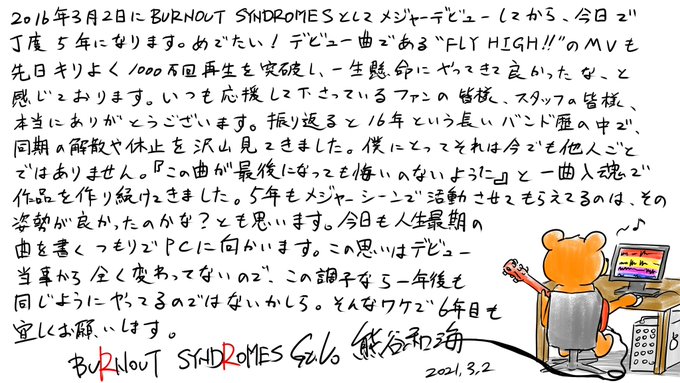 2016年3月2日にBURNOUT SYNDROMESとしてメジャーデビューしてから、今日で
丁度5年になります。めでたい！デビュー曲である"FLY HIGH!!"のMVも
先日キリよく1000万回再生を突破し、一生懸命にやってきて良かったな、と
感じております。いつも応援して下さっているファンの皆様、スタッフの皆様、
本当にありがとうございます。振り返ると16年という長いバンド歴の中で、
同期の解散や休止を沢山見てきました。僕にとってそれは今でも他人ごと
ではありません。『この曲が最後になっても悔いのないように』と一曲入魂で
作品を作り続けてきました。5年もメジャーシーンで活動させてもらえてるのは、その
姿勢が良かったのかな？とも思います。今日も人生最期の
曲を書くつもりでPCに向かいます。この思いはデビュー
当事から全く変わってないので、この調子なら一年後も
同じようにやってるのではないかしら。そんなワケで6年目も
宜しくお願いします。
BURNOUT SYNDROMES Gt.Vo. 熊谷和海
2021.3.2